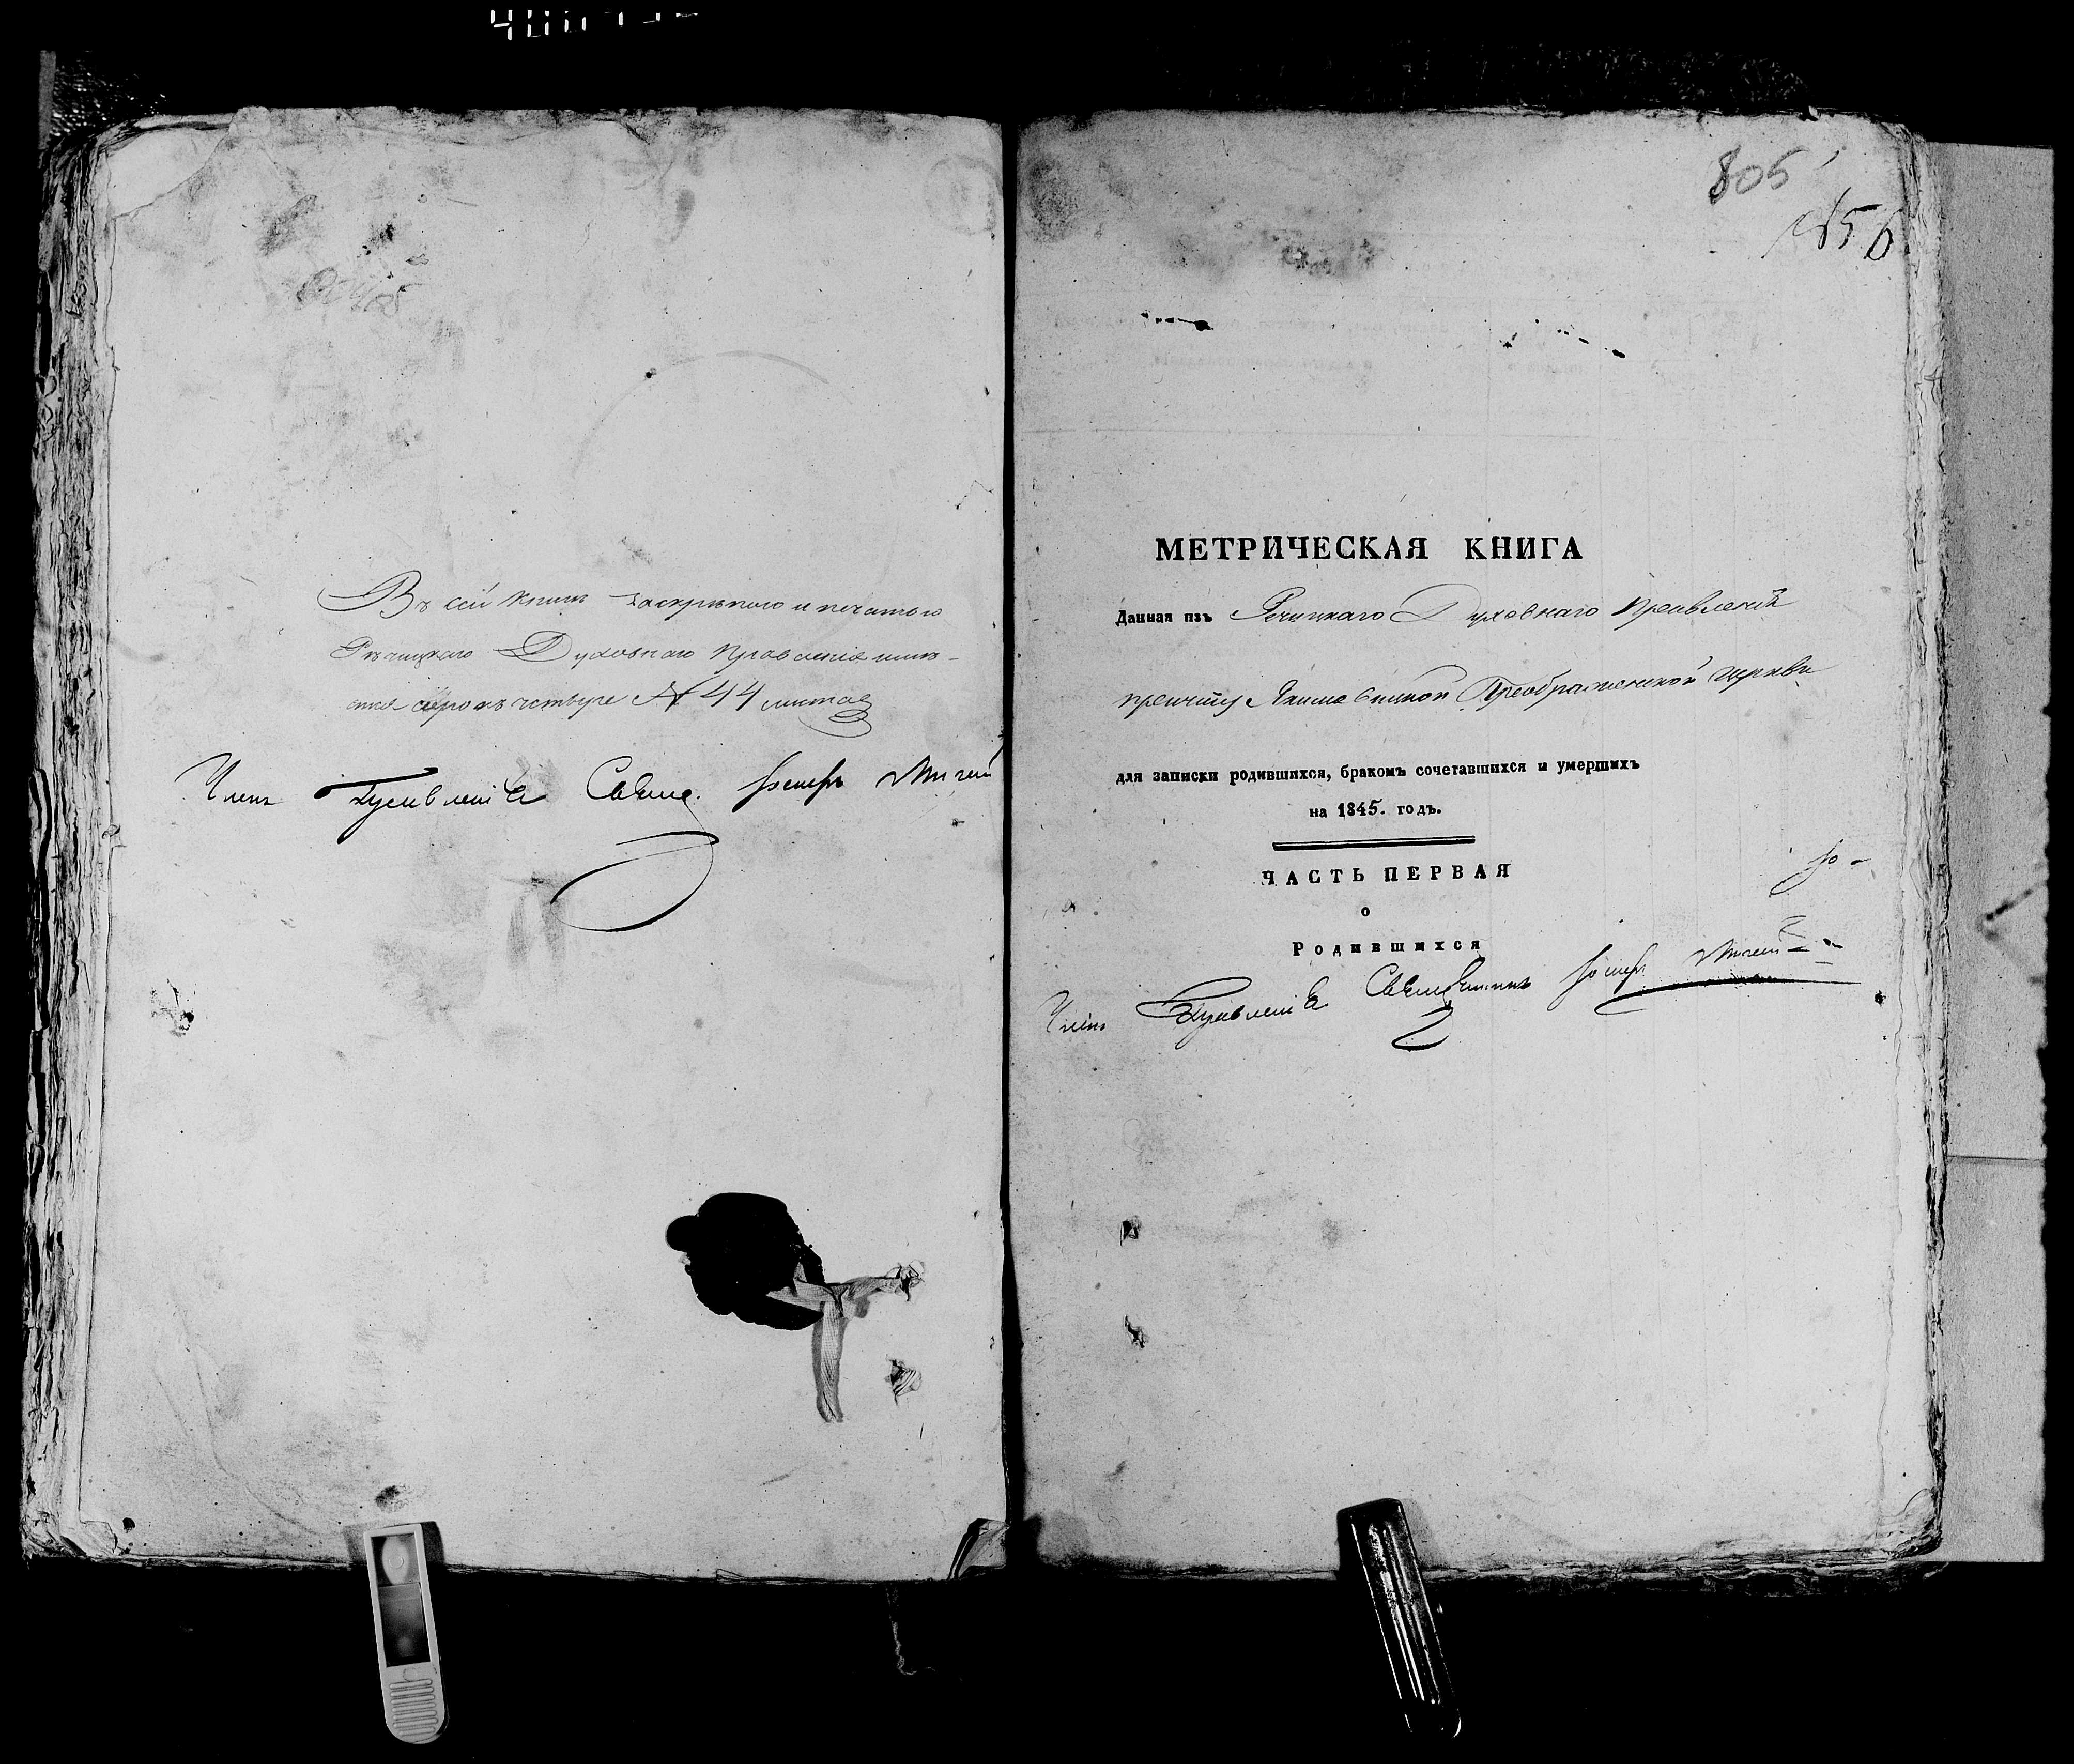 Въ сей книгѣ за скрѣпою и печатью
Рѣчицкаго Духовнаго Правленія имѣ-
ется сорокъ четыре № 44 листа
Членъ Правленія Свящ. Іосифъ
805
№ 56
МЕТРИЧЕСКАЯ КНИГА
Данная изъ Речицкаго Духовнаго Правленія
причту Преображенской церкви
для записки родившихся, бракомъ сочетавшихся и умершихъ
на 1845. годъ.
ЧАСТЬ ПЕРВАЯ
о
Родившихся
Членъ Правленія Священникъ Іосифъ